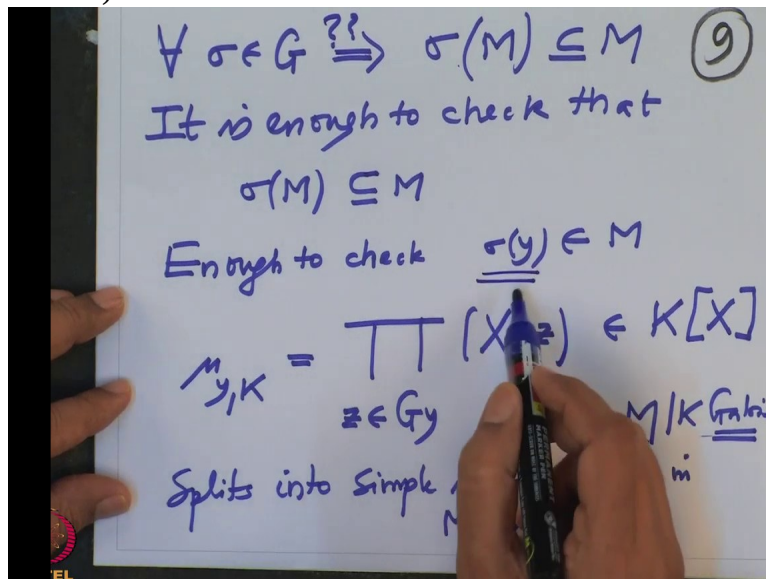 ∀ σ∈G ??⟹ σ(M) ⊆ M ⑨
It is enough to check that
σ(M) ⊆ M
Enough to check σ(y) ∈ M
μ_{y,K} = ∏ (X z) ∈ K[X]
z∈Gy M/K Galoi
Splits into simple in
M
EL